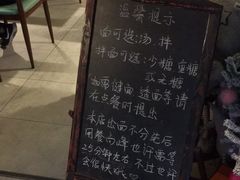 温馨提示
面可选:汤、拌
拌面可选:少糖 重糖
或走糖
如需硬面 透面等请
在点餐时提出
本店出面不分先后
用餐高峰也许需要
25分钟左右 不过也许
会很快哦